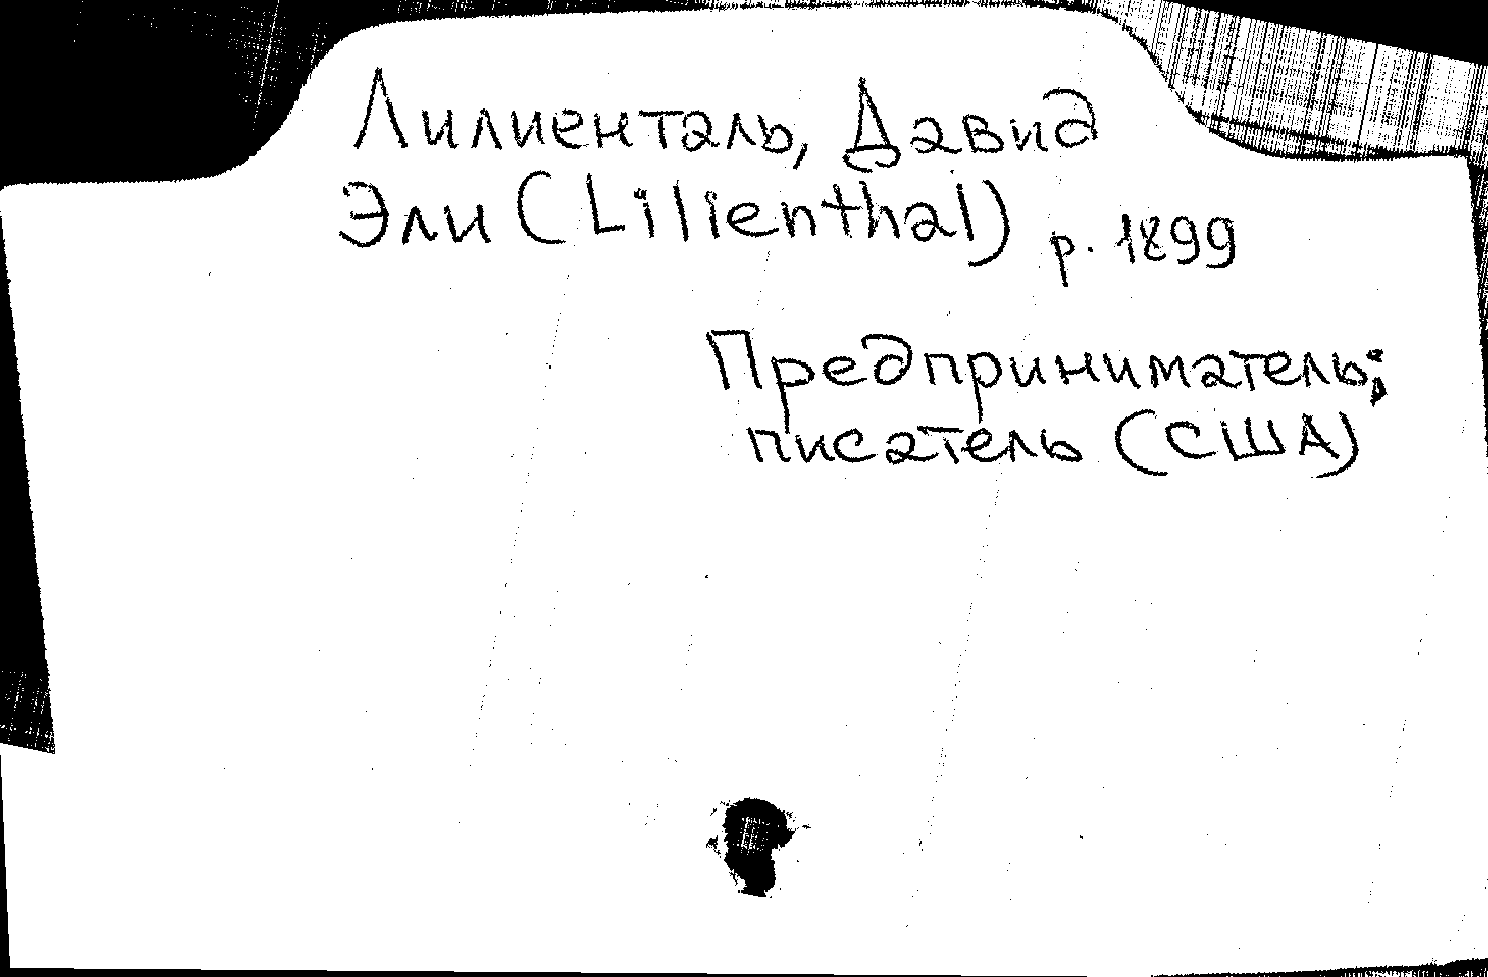 Лилиенталь, Давид
Эли (Lilienthal) р. 1899
Предприниматель;
писатель (США)